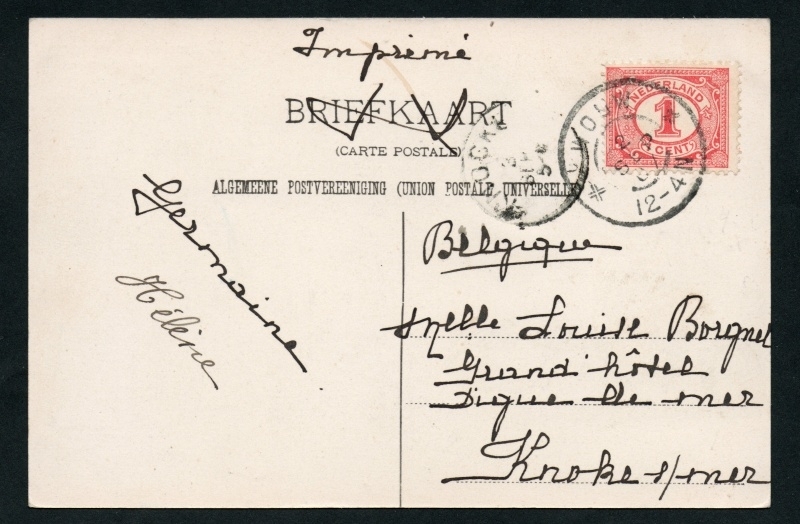 Imprimé
BRIEFKAART
(CARTE POSTALE)
ALGEMEENE POSTVEREENIGING (UNION POSTALE UNIVERSELLE)
NEDERLAND
1
CENT
12-4N
Germaine
Hélène
Belgique
Melle Louise Borgnet
Grand hôtel
Digue de mer
Knoke s/mer